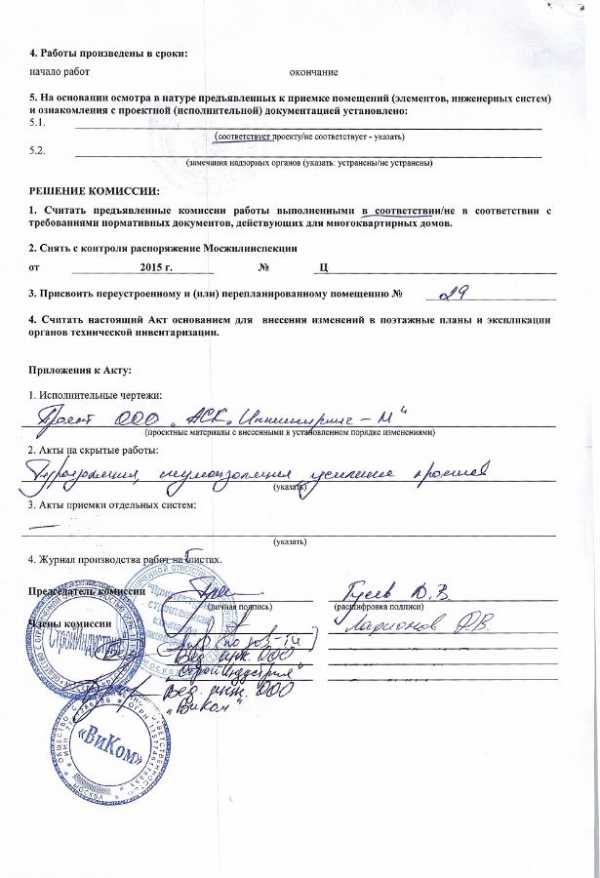 4. Работы произведены в сроки:
начало работ окончание
5. На основании осмотра в натуре предъявленных к приемке помещений (элементов, инженерных систем)
и ознакомления с проектной (исполнительной) документацией установлено:
5.1.
(соответствует проекту/не соответствует - указать)
5.2.
(замечания надзорных органов (указать: устранены/не устранены)
РЕШЕНИЕ КОМИССИИ:
1. Считать предъявленные комиссии работы выполненными в соответствии/не в соответствии с
требованиями нормативных документов, действующих для многоквартирных домов.
2. Снять с контроля распоряжение Мосжилинспекции
от 2015 г. № Ц
3. Присвоить переустроенному и (или) перепланированному помещению № 29
4. Считать настоящий Акт основанием для внесения изменений в поэтажные планы и экспликации
органов технической инвентаризации.
Приложения к Акту:
1. Исполнительные чертежи:
Проект ООО „АСК-Инжиниринг-М"
(проектные материалы с внесенными в установленном порядке изменениями)
2. Акты на скрытые работы:
Гидроизоляция, шумоизоляция, усиление проемов
(указать)
3. Акты приемки отдельных систем:
—
(указать)
4. Журнал производства работ на листах.
Председатель комиссии Гусев Д.В.
(личная подпись) (расшифровка подписи)
Члены комиссии Ларионов
Вед. инж. ООО
"Стройиндустрия"
Вед. инж. ООО
"ВиКом"
«ВиКом»
МОСКВА